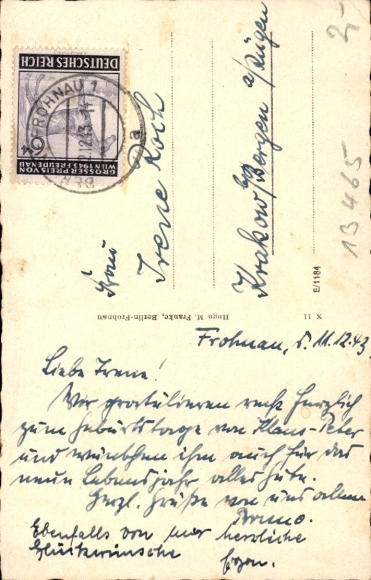 DEUTSCHES REICH
GROSSER PREIS VON
WIEN 1943 FREUDENAU
FROHNAU 1
12.43
Frau
Irene Koch
Krakow b/Bergen a/Rügen
13465
E/1184
X 11 Hugo M. Franke, Berlin-Frohnau
Frohnau, d. 11.12.43
Liebe Irene!
Wir gratulieren recht herzlich
zum Geburtstage von Klaus-Peter
und wünschen ihm auch für das
neue Lebensjahr alles Gute.
Herzl. Grüße von uns allen
Bruno.
Ebenfalls von mir herzliche
Glückwünsche